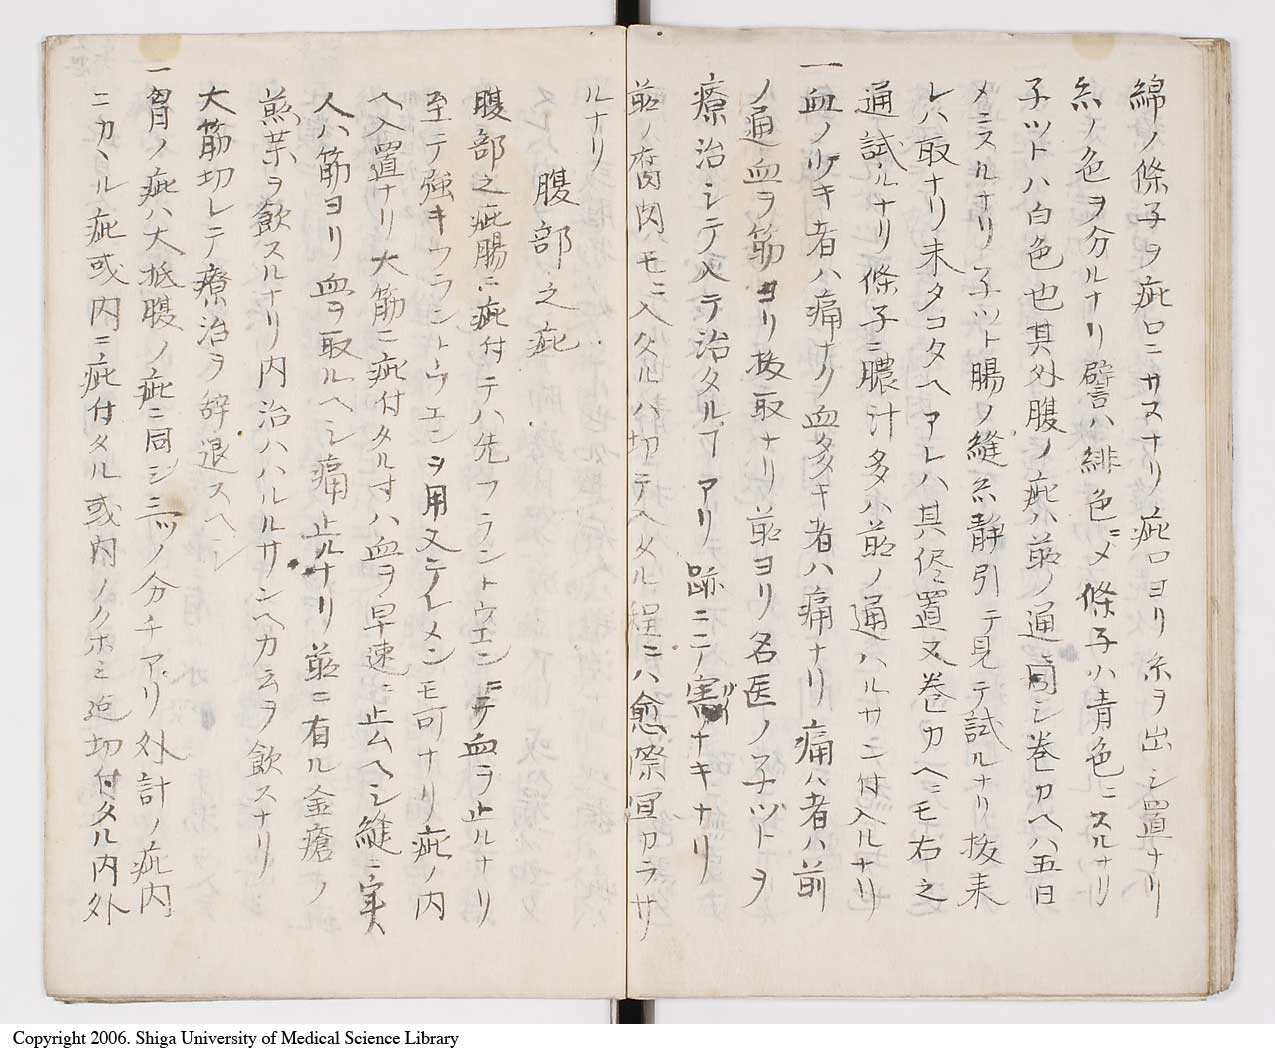 綿ノ條子ヲ疵口ニサスナリ疵口ヨリ糸ヲ出シ置ナリ
糸ノ色ヲ分ルナリ譬ハ緋色ニメ條子ハ青色ニスルナリ
子ツトハ白色也其外腹ノ疵ハ前ノ通同シ巻カヘハ五日
メニスルナリ子ツト腸ノ縫糸静引テ見テ試ルナリ抜来
レハ取ナリ未タコタヘアレハ其侭置又巻カヘニモ右之
通試ルナリ條子ニ膿汁多ハ前ノ通ハルサニ付入ルナリ
一血ノ少キ者ハ痛ナク血多キ者ハ痛ナリ痛ハ者ハ前
ノ通血ヲ筋ヨリ抜取ナリ前ヨリ名医ノ子ヅトヲ
療治シテ入テ治タルヿアリ跡ニ二ノ割ナキナリ
前ノ腐肉ハモニ入タルハ切テヘタル程ニハ愈際宜カラサ
ルナリ
腹部之疵
腹部之疵腸ニ疵付テハ先フラントウエンニテ血ヲ止ルナリ
至テ強キフラントウエンヲ用又テレメンモ可ナリ疵ノ内
ヘ入置ナリ大筋ニ疵付タル寸ハ血ヲ早速ニ止ムヘシ縫ニ実
人ハ筋ヨリ血ヲ取ルヘシ痛止ルナリ前ニ有ル金瘡ノ
煎薬ヲ飲スルナリ内治ハハルルサンヘカ云ヲ飲スナリ
大筋切レテ療治ヲ辞退スヘシ
一胃ノ疵ハ大抵腹ノ疵ニ同シ三ツノ分チアリ外計ノ疵内
ニカヽル疵或内ニ疵付タル或内ノクホミ迄切付タル内外